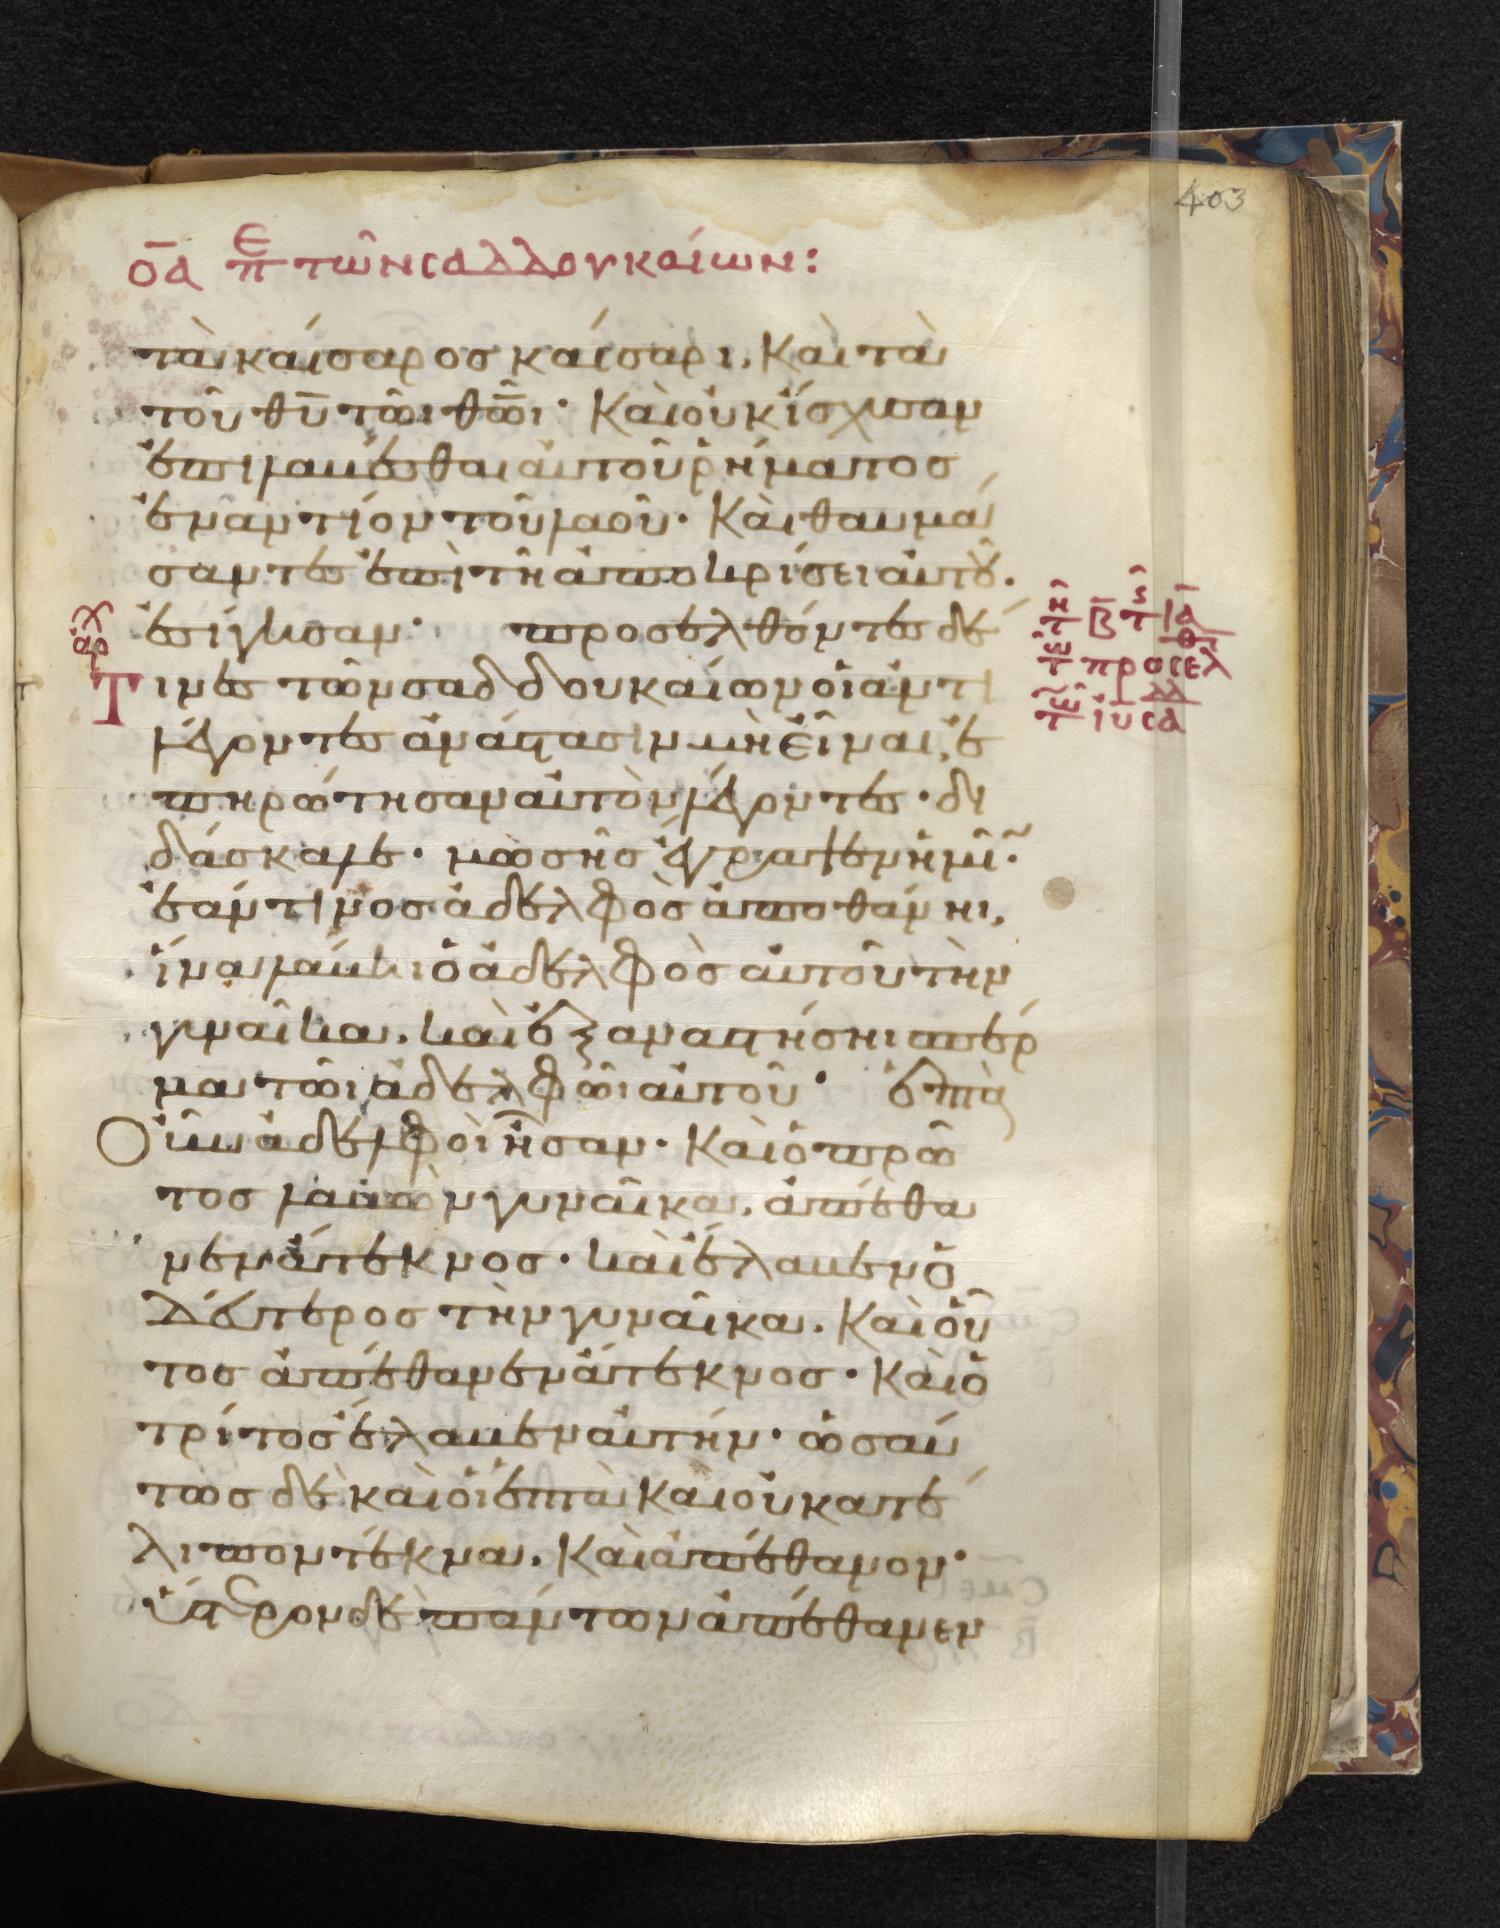 403
ο̅α̅ πε τῶν σαδδουκαίων:
τὰ καίσαρος καίσαρι. Καὶ τὰ
τοῦ θ̅υ̅ τῶι θ̅ω̅ι· Καὶ οὐκ ἴσχυσαν
ἐπιλαβέσθαι αὐτοῦ ῥήματος
ἐναντίον τοῦ λαοῦ· Καὶ θαυμά
σαντες ἐπὶ τῆ ἀποκρίσει αὐτοῦ.
ἐσίγησαν· προσελθόντες δέ
τινες τῶν σαδδουκαίων οἱ ἀντι
λέγοντες ἀνάστασιν μὴ εἶναι, ἐ
πηρώτησαν αὐτὸν λέγοντες· δι
δάσκαλε· μωσῆς ἔγραψεν ἡμῖν·
ἐάν τινος ἀδελφὸς ἀποθάνηι,
ἵνα λάβηι ὁ ἀδελφὸς αὐτοῦ τὴν
γυναῖκα. καὶ ἐξαναστήσηι σπέρ
μα τῶι ἀδελφῶι αὐτοῦ· ἑπτὰ
οὖν ἀδελφοὶ ἦσαν· Καὶ ὁ πρῶ
τος λαβὼν γυναῖκα. ἀπέθα
νεν ἄτεκνος· καὶ ἔλαβεν ὁ
δεύτερος τὴν γυναῖκα. Καὶ οὗ
τος ἀπέθανεν ἄτεκνος· Καὶ ὁ
τρίτος ἔλαβεν αὐτήν· ὡσαύ
τως δὲ καὶ οἱ ἑπτὰ καὶ οὐ κατέ
λιπον τέκνα. Καὶ ἀπέθανον·
ὕστερον δὲ πάντων ἀπέθανεν